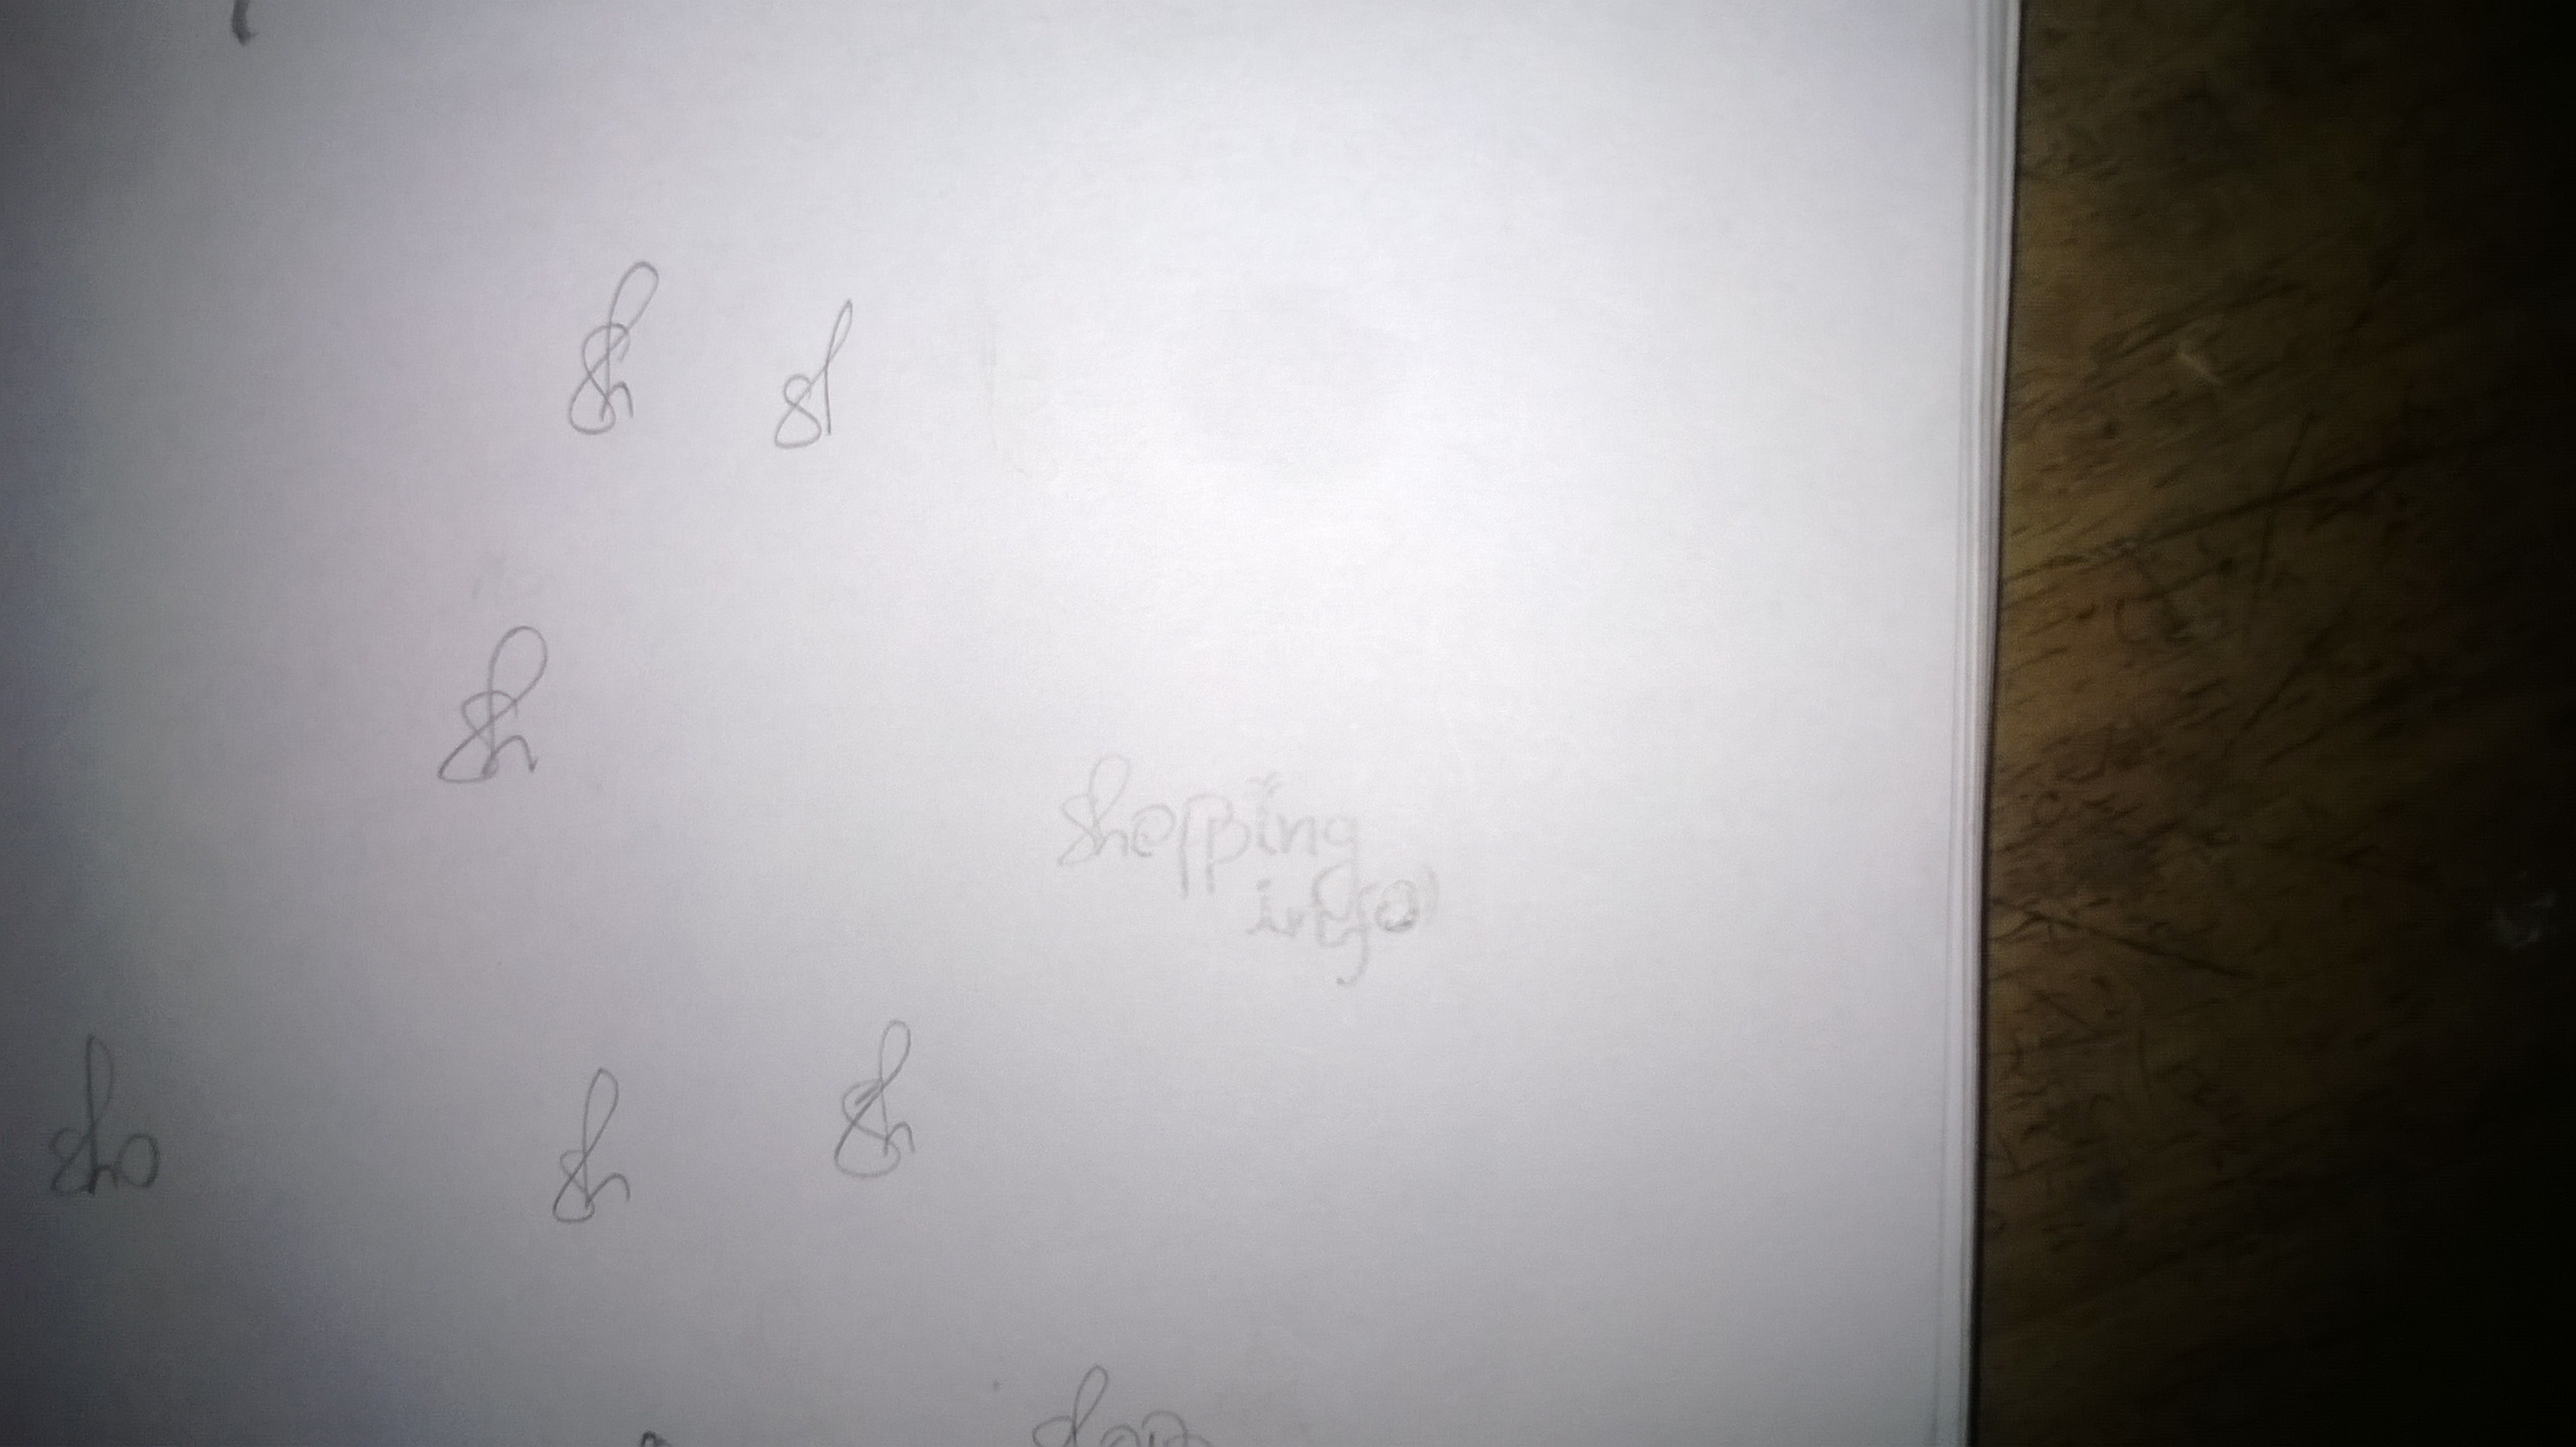 sh sl
sh
shopping
info
sho sh sh